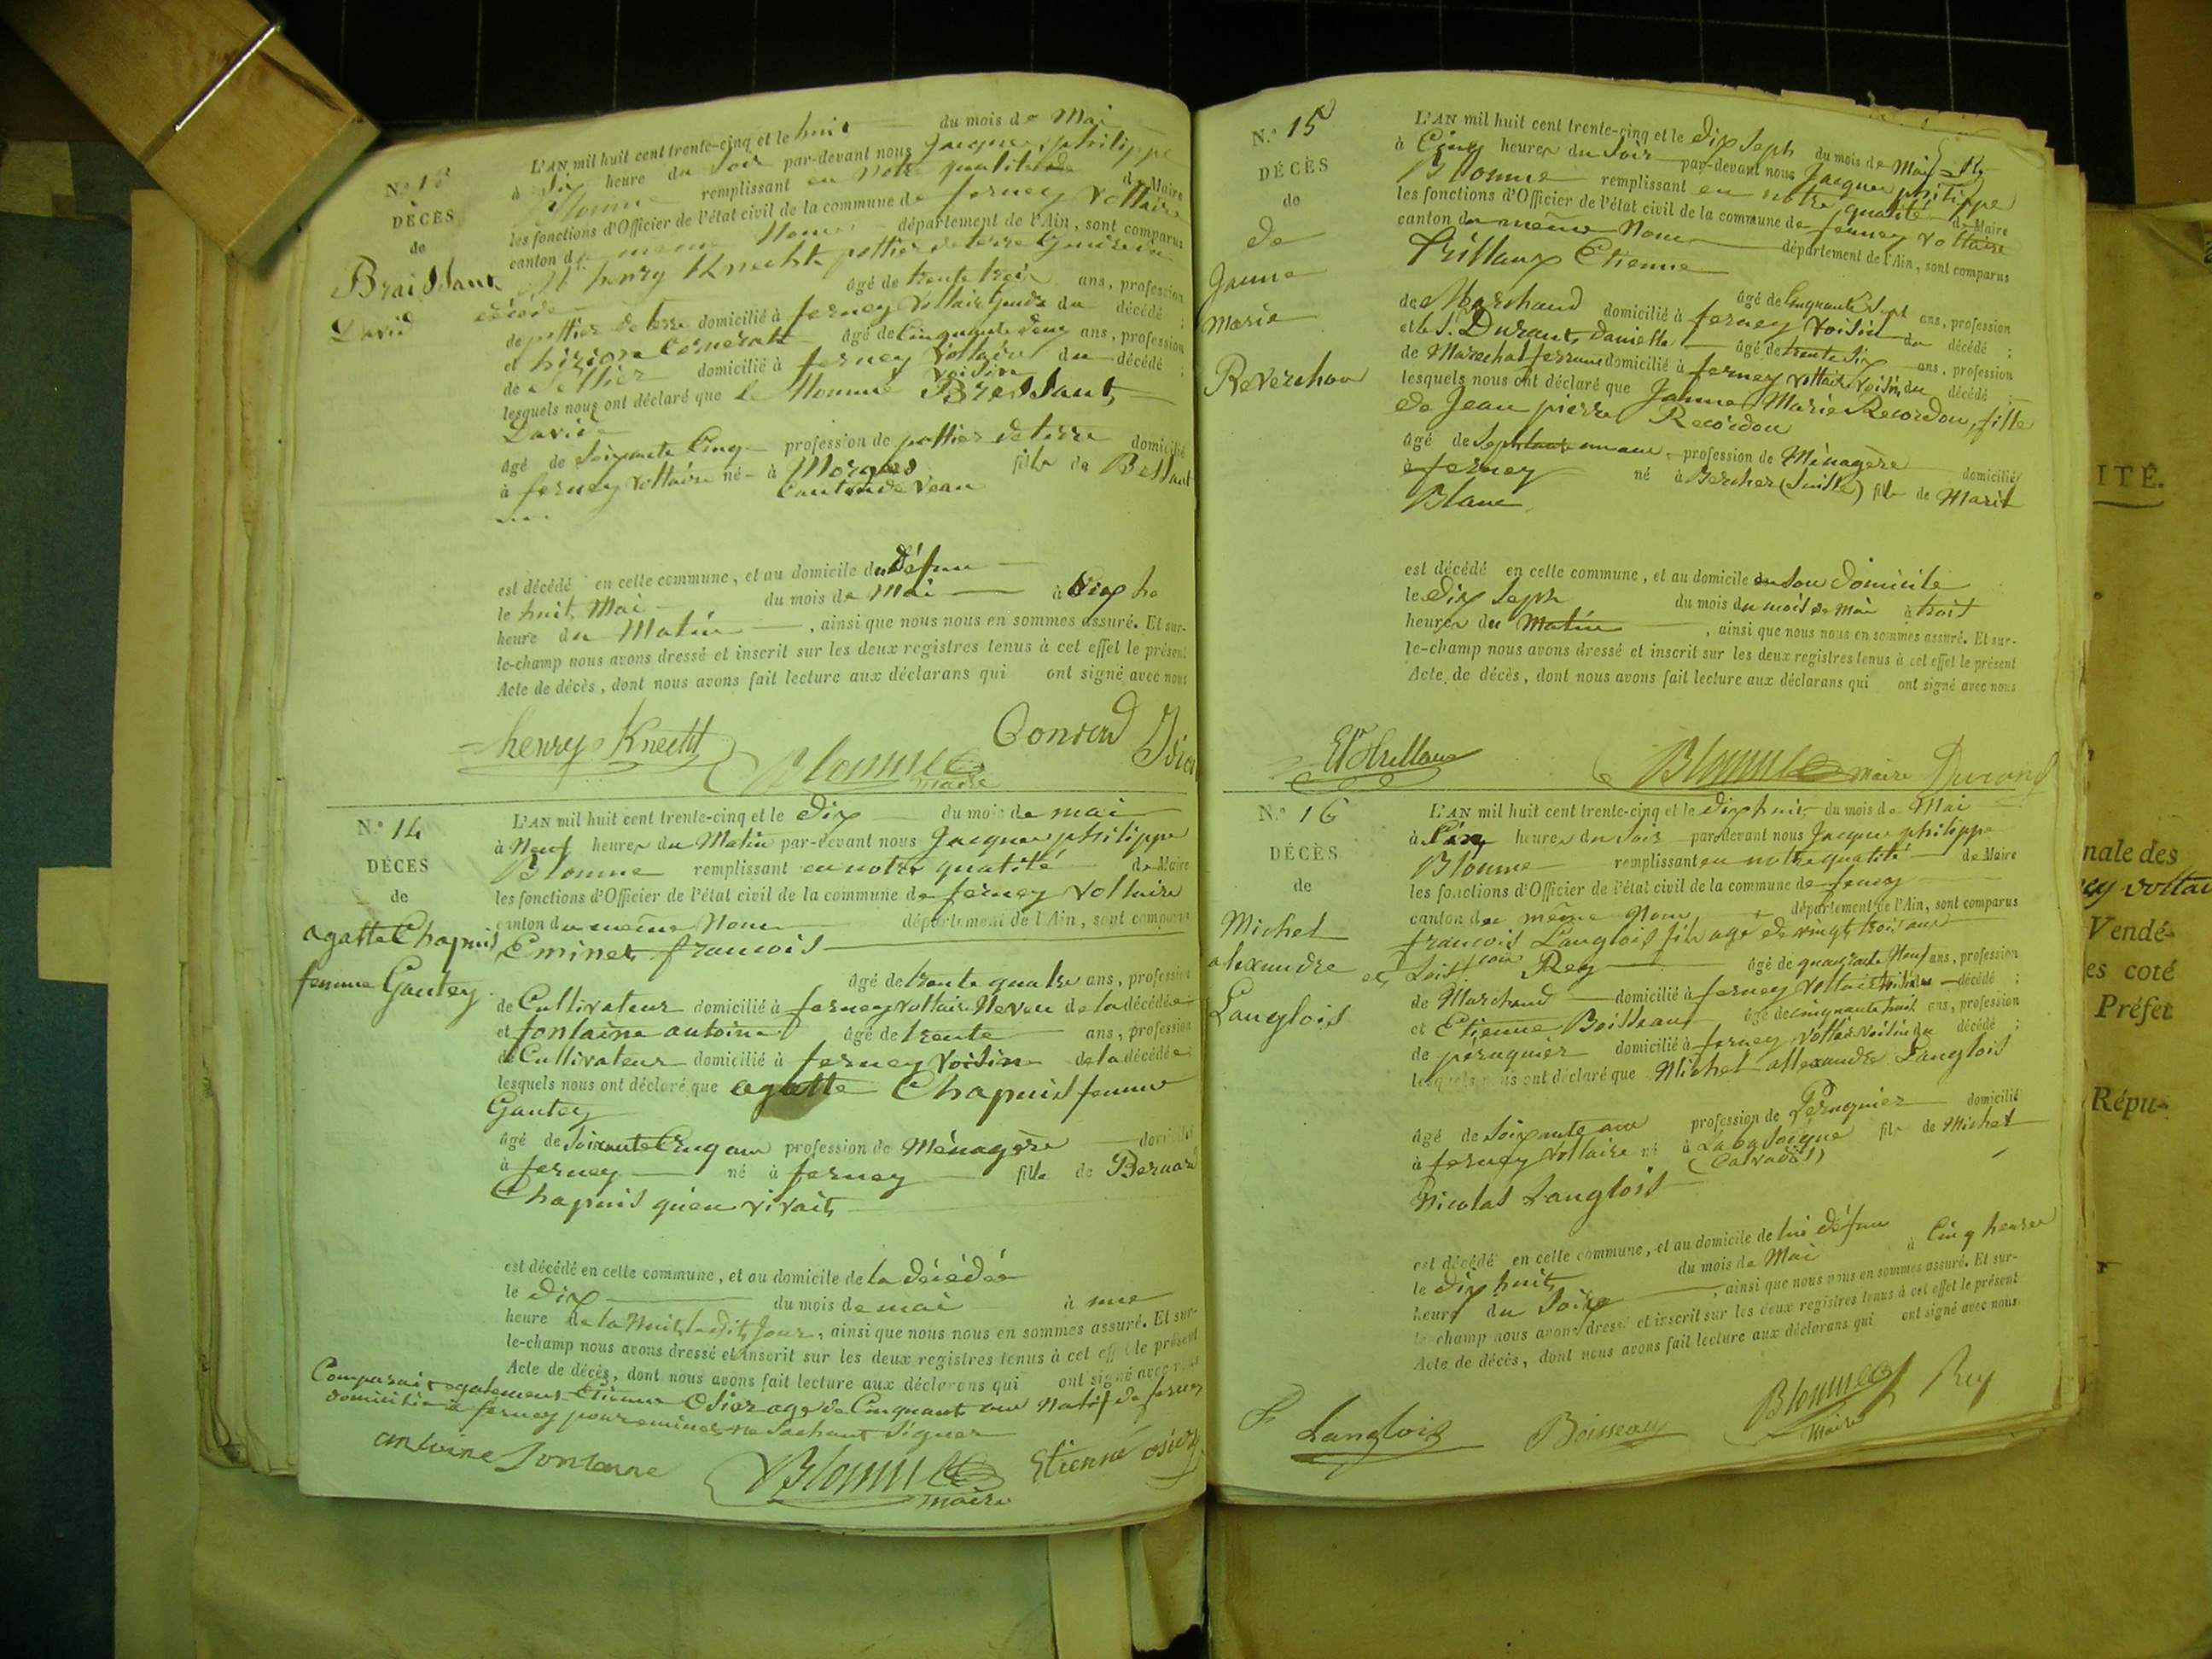 N.º 13
DÉCÈS
de
Braissant
David
L'AN mil huit cent trente-cinq et le huit du mois de Mai
à Six heure du Soir par-devant nous Jacques philippe
Blonme remplissant en notre qualité de Maire
les fonctions d'Officier de l'état civil de la commune de ferney Voltaire
canton du meme Nom département de l'Ain, sont comparus
henry Knecht pottier de terre
âgé de trente trois ans, profession
de pottier de terre domicilié à ferney Voltaire Gendre du décédé ;
et âgé de Cinquante deux ans, profession
de Sellier domicilié à ferney Voltaire voisin du décédé ;
lesquels nous ont déclaré que le Nommé Bressant
David
âgé de Soixante Cinq profession de pottier de terre domicilié
à ferney Voltaire né à Morges fils de Bessant
Canton de Veau
est décédé en cette commune, et au domicile du Défun
le huit Mai du mois de Mai à Dix he
heure du Matin, ainsi que nous nous en sommes assuré. Et sur-
le-champ nous avons dressé et inscrit sur les deux registres tenus à cet effet le présent
Acte de décès, dont nous avons fait lecture aux déclarans qui ont signé avec nous
henry Knecht Blonme maire Conrad
N.º 14
DÉCÈS
de
agatte Chapuis
femme Gautey
L'AN mil huit cent trente-cinq et le Dix du mois de mai
à Neuf heures du Matin par-devant nous Jacques philippe
Blonme remplissant en notre qualité de Maire
les fonctions d'Officier de l'état civil de la commune de ferney Voltaire
canton du meme Nom département de l'Ain, sont comparus
Eminet francois
âgé de trente quatre ans, profession
de Cultivateur domicilié à ferney Voltaire Neveu de la décédée
et fontaine antoine âgé de trente ans, profession
de Cultivateur domicilié à ferney Voisin de la décédée
lesquels nous ont déclaré que agatte Chapuis femme
Gautey
âgé de Soixante Cinq ans profession de Ménagère domicilié
à ferney né à ferney fille de Bernard
Chapuis quien vivait
est décédé en cette commune, et au domicile de la décédée
le Dix du mois de mai à une
heure de la Nuit ledit Jour, ainsi que nous nous en sommes assuré. Et sur-
le-champ nous avons dressé et inscrit sur les deux registres tenus à cet effet le présent
Acte de décès, dont nous avons fait lecture aux déclarans qui ont signé avec nous
Comparait egalement Etienne Osier age de Cinquante ans Natif de ferney
domicilié a ferney pour eminet ne Sachant Signer
antoine fontanne Blonme maire Etienne osier
N.º 15
DÉCÈS
de
de
Janne
Marie
Reverchon
L'AN mil huit cent trente-cinq et le Dix Sept du mois de Mai
à Cinq heures du Soir par-devant nous Jacques philippe
Blonme remplissant en notre qualité de Maire
les fonctions d'Officier de l'état civil de la commune de ferney Voltaire
canton du même Nom département de l'Ain, sont comparus
Trillaux Etienne
âgé de Cinquante Sept ans, profession
de Marchand domicilié à ferney Voisin du décédé ;
et le S. Durant Danielle âgé de trente Six ans, profession
de Marechal ferrant domicilié à ferney Voltaire Voisin du décédé ;
lesquels nous ont déclaré que Janne Marie Recordon, fille
de Jean pierre Recordon
âgé de profession de Ménagère domicilié
à ferney né à Bercher (Suisse) fils de Marie
Blanc
est décédé en cette commune, et au domicile de Son Domicile
le Dix Sept du mois du mois de Mai à trois
heures du Matin, ainsi que nous nous en sommes assuré. Et sur-
le-champ nous avons dressé et inscrit sur les deux registres tenus à cet effet le présent
Acte de décès, dont nous avons fait lecture aux déclarans qui ont signé avec nous
Et Trillaux Blonme maire Durand
N.º 16
DÉCÈS
de
Michel
alexandre
Langlois
L'AN mil huit cent trente-cinq et le Dix huit du mois de Mai
à Six heures du Soir par-devant nous Jacques philippe
Blonme remplissant en notre qualité de Maire
les fonctions d'Officier de l'état civil de la commune de ferney
canton du même Nom département de l'Ain, sont comparus
francois Langlois fils agé de vingt trois ans
et Rey âgé de quarante Neuf ans, profession
de Marchand domicilié à ferney Voltaire Voisin du décédé ;
et Etienne Boisseau âgé de cinquante huit ans, profession
de péruquier domicilié à ferney Voltaire Voisin du décédé ;
lesquels nous ont déclaré que Michel allexandre Langlois
âgé de Soixante ans profession de Peruquier domicilié
à ferney Voltaire né à fils de Michel
(Calvados)
Nicolas Langlois
est décédé en cette commune, et au domicile de lui défun
le dix huit du mois de Mai à Cinq heures
heure du Soir, ainsi que nous nous en sommes assuré. Et sur-
le-champ nous avons dressé et inscrit sur les deux registres tenus à cet effet le présent
Acte de décès, dont nous avons fait lecture aux déclarans qui ont signé avec nous
F Langlois Boisseau Blonme Maire Rey
ITÉ.
nale des
ey voltai
Vendé-
es coté
Préfet
Répu-